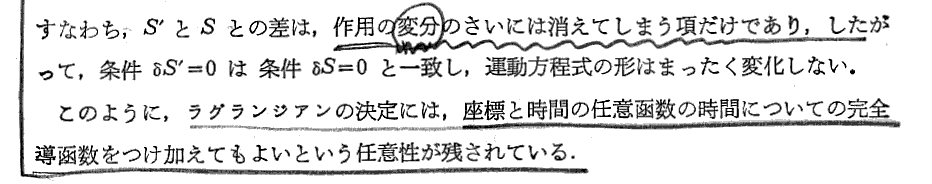 すなわち，S′ と S との差は，作用の変分のさいには消えてしまう項だけであり，したが
って，条件 δS′=0 は 条件 δS=0 と一致し，運動方程式の形はまったく変化しない．
このように，ラグランジアンの決定には，座標と時間の任意函数の時間についての完全
導函数をつけ加えてもよいという任意性が残されている．